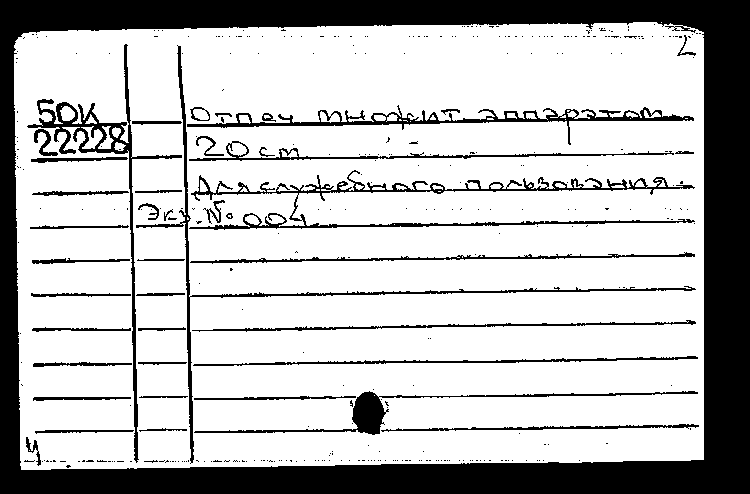 2
50К Отпеч множит аппаратом
22228 20 cm
Для служебного пользования.
Экз. № 004
Ч